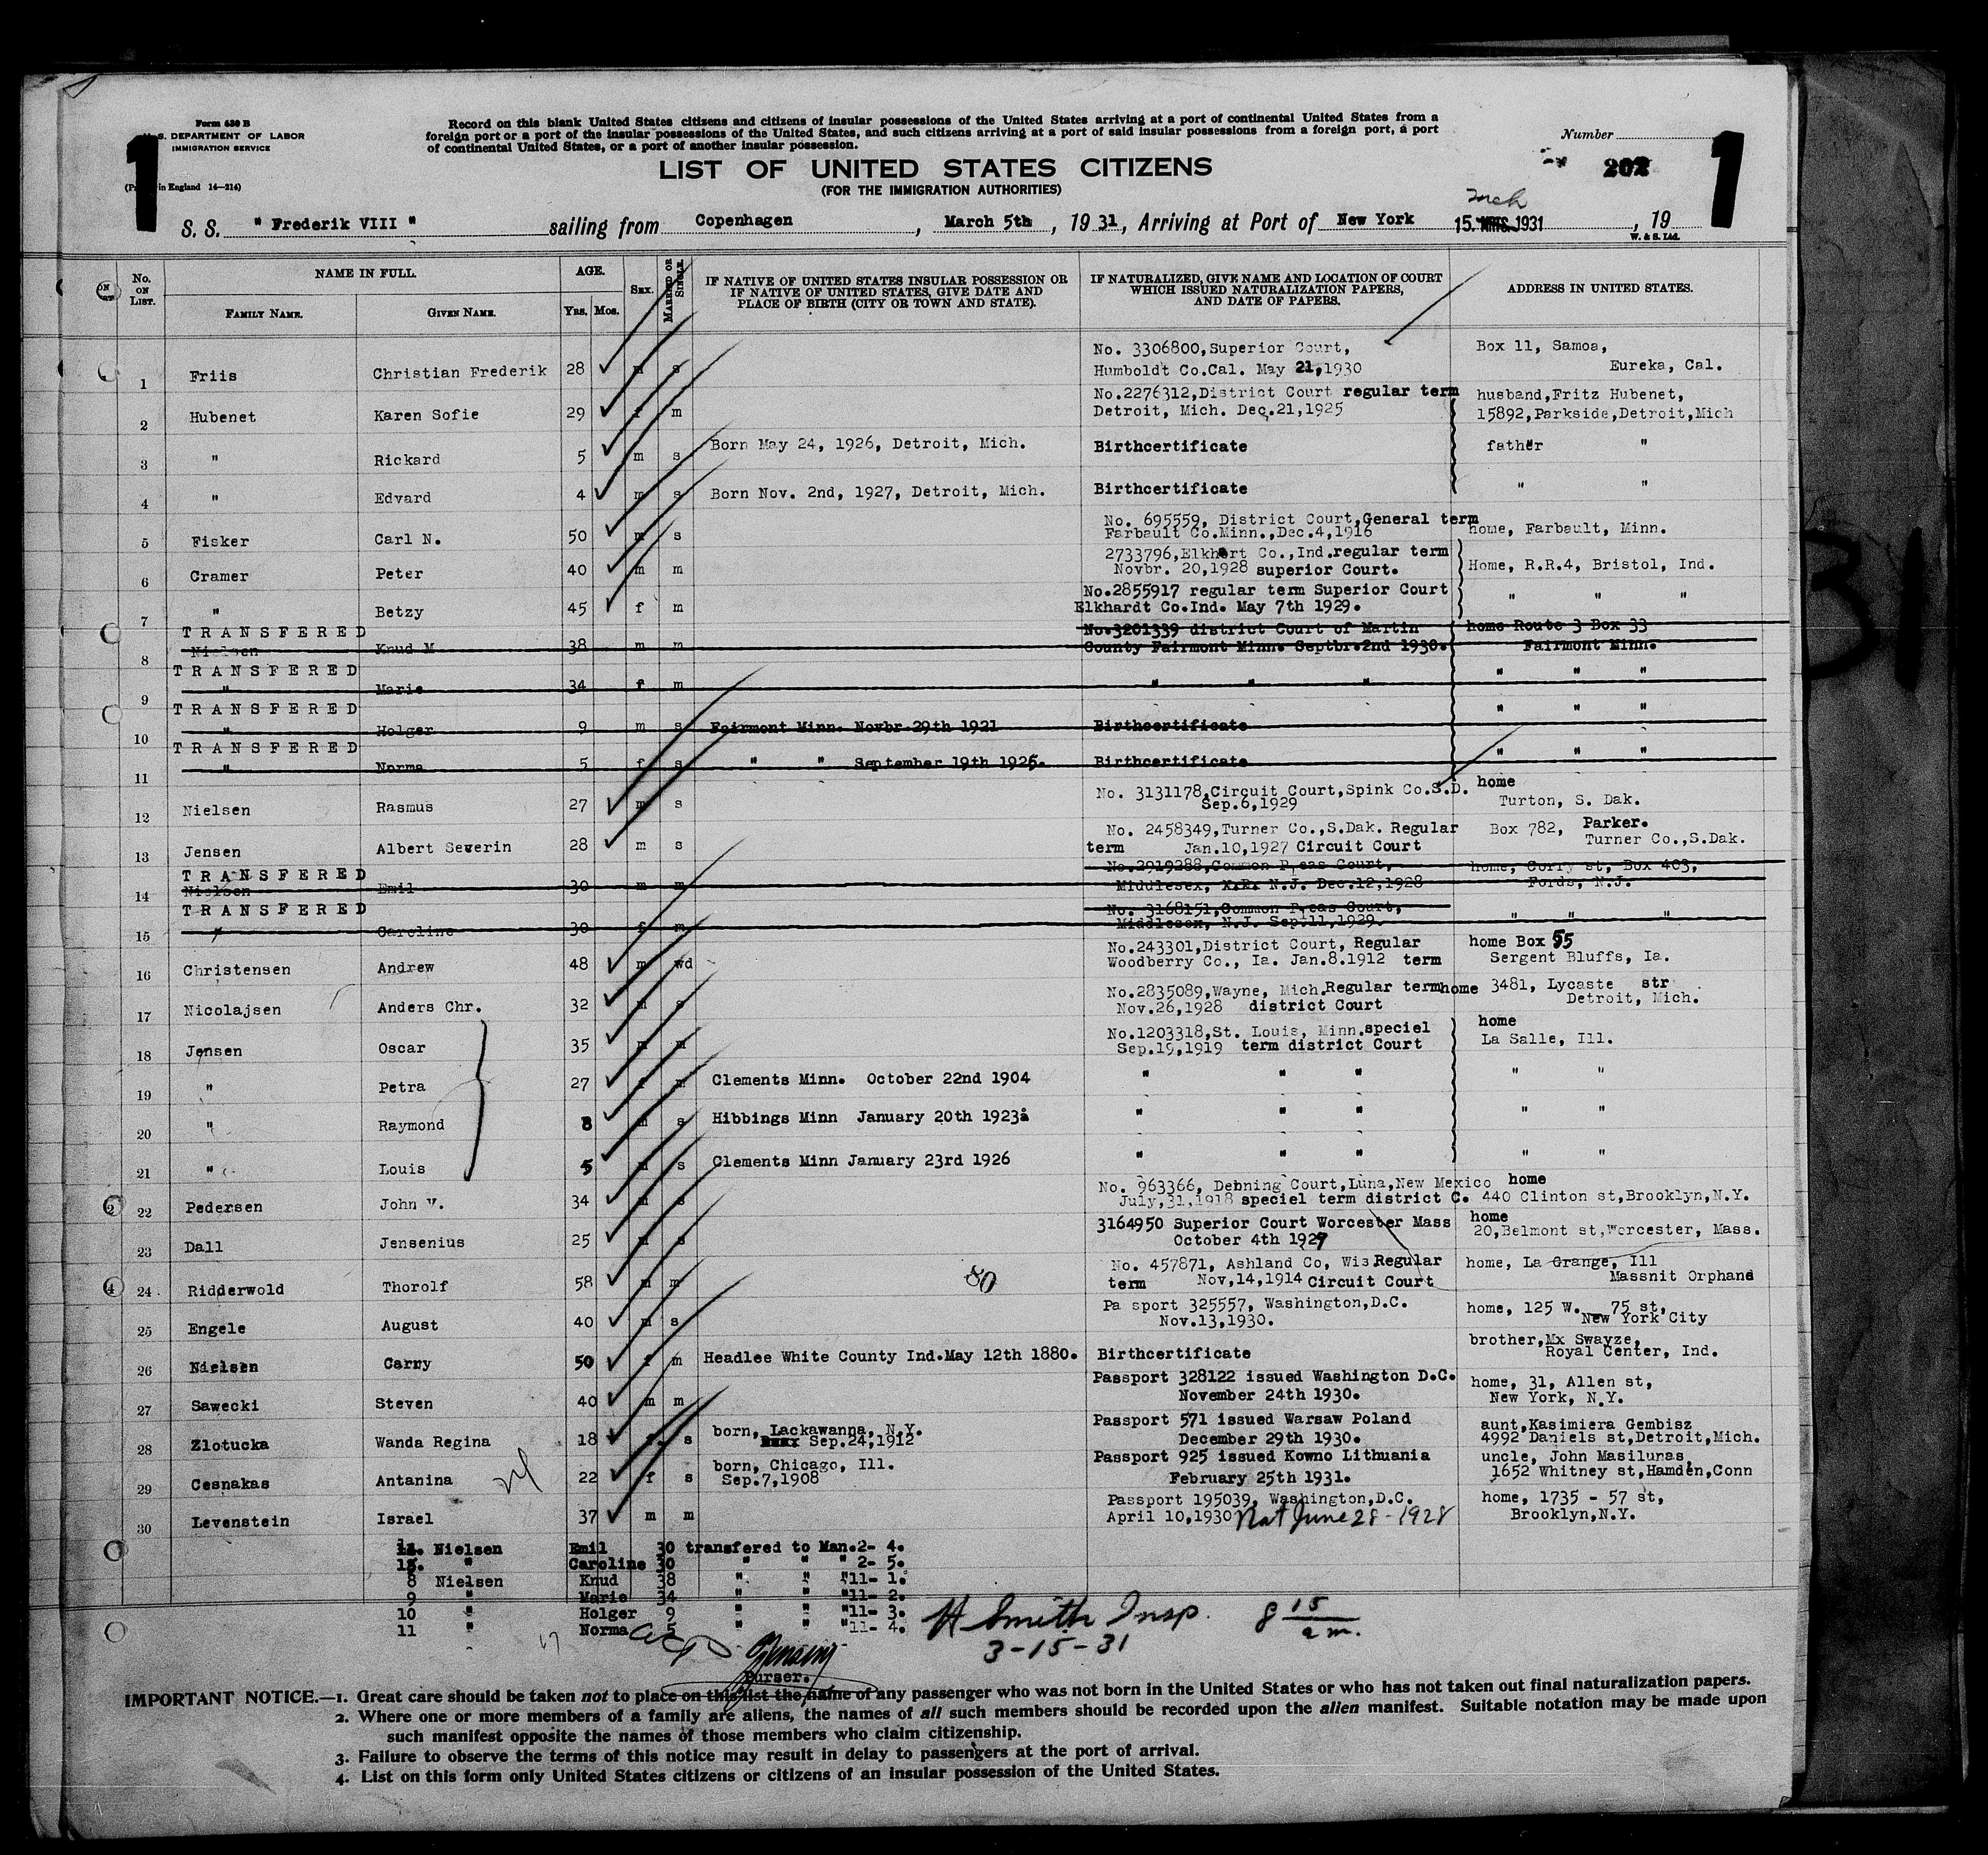 Form 630 B
U. S. DEPARTMENT OF LABOR
IMMIGRATION SERVICE
(Printed in England 14—214)
1
Record on this blank United States citizens and citizens of insular possessions of the United States arriving at a port of continental United States from a
foreign port or a port of the insular possessions of the United States, and such citizens arriving at a port of said insular possessions from a foreign port, a port
of continental United States, or a port of another insular possession.
Number
1
LIST OF UNITED STATES CITIZENS
(FOR THE IMMIGRATION AUTHORITIES)
S. S. " Frederik VIII " sailing from Copenhagen , March 5th , 19 31, Arriving at Port of New York 15. 1931 , 19
W. & S. Ltd.
No. ON LIST.
NAME IN FULL.
FAMILY NAME. GIVEN NAME.
AGE.
Yrs. Mos.
SEX.
MARRIED OR SINGLE.
IF NATIVE OF UNITED STATES INSULAR POSSESSION OR
IF NATIVE OF UNITED STATES, GIVE DATE AND
PLACE OF BIRTH (CITY OR TOWN AND STATE).
IF NATURALIZED, GIVE NAME AND LOCATION OF COURT
WHICH ISSUED NATURALIZATION PAPERS,
AND DATE OF PAPERS.
ADDRESS IN UNITED STATES.
1 Friis Christian Frederik 28 m s No. 3306800,Superior Court, Box 11, Samoa,
Humboldt Co.Cal. May 21,1930 Eureka, Cal.
2 Hubenet Karen Sofie 29 f m No.2276312,District Court regular term husband,Fritz Hubenet,
Detroit, Mich. Dec.21,1925 15892,Parkside,Detroit,Mich
3 " Rickard 5 m s Born May 24, 1926, Detroit, Mich. Birthcertificate father "
4 " Edvard 4 m s Born Nov. 2nd, 1927, Detroit, Mich. Birthcertificate " "
5 Fisker Carl N. 50 m s No. 695559, District Court,General term home, Farbault, Minn.
Farbault Co.Minn.,Dec.4,1916
6 Cramer Peter 40 m m 2733796,Elkhart Co.,Ind.regular term Home, R.R.4, Bristol, Ind.
Novbr. 20,1928 superior Court.
7 " Betzy 45 f m No.2855917 regular term Superior Court " " "
Elkhardt Co.Ind. May 7th 1929.
TRANSFERED
8 Nielsen Knud M 38 m m No.3201339 district Court of Martin home Route 3 Box 33
County Fairmont Minn. Septbr.2nd 1930. Fairmont Minn.
TRANSFERED
9 " Marie 34 f m " " " " " "
TRANSFERED
10 " Holger 9 m s Fairmont Minn. Novbr 29th 1921 Birthcertificate " " "
TRANSFERED
11 " Norma 5 f s " " September 19th 1925. Birthcertificate " " "
12 Nielsen Rasmus 27 m s No. 3131178,Circuit Court,Spink Co.S.D. home
Sep.6,1929 Turton, S. Dak.
13 Jensen Albert Severin 28 m s No. 2458349,Turner Co.,S.Dak. Regular Box 782, Parker.
term Jan.10,1927 Circuit Court Turner Co.,S.Dak.
TRANSFERED
14 Nielsen Emil 30 m m No.2919288,Common Pleas Court, home, Corry st, Box 403,
Middlesex, N.J. Dec.12,1928 Fords, N.J.
TRANSFERED
15 " Caroline 30 f m No. 3168151,Common Pleas Court, " " "
Middlesex, N.J. Sep.11,1929.
16 Christensen Andrew 48 m wd No.243301,District Court, Regular home Box 55
Woodberry Co., Ia. Jan.8.1912 term Sergent Bluffs, Ia.
17 Nicolajsen Anders Chr. 32 m s No.2835089,Wayne, Mich.Regular term home 3481, Lycaste str
Nov.26,1928 district Court Detroit, Mich.
18 Jensen Oscar 35 m m No.1203318,St. Louis, Minn.speciel home
Sep.19,1919 term district Court La Salle, Ill.
19 " Petra 27 f m Clements Minn. October 22nd 1904 " " " " "
20 " Raymond 8 m s Hibbings Minn January 20th 1923 " " " " "
21 " Louis 5 m s Clements Minn January 23rd 1926 " " " " "
22 Pedersen John V. 34 m s No. 963366, Debning Court,Luna,New Mexico home
July,31,1918 speciel term district C. 440 Clinton st,Brooklyn,N.Y.
23 Dall Jensenius 25 m s 3164950 Superior Court Worcester Mass home
October 4th 1929 20,Belmont st,Worcester, Mass.
24 Ridderwold Thorolf 58 m m 80 No. 457871, Ashland Co, Wis Regular home, La Grange, Ill
term Nov,14,1914 Circuit Court Massnit Orphand
25 Engele August 40 m s Pa sport 325557, Washington,D.C. home, 125 W. 75 st,
Nov.13,1930. New York City
26 Nielsen Carry 50 f m Headlee White County Ind.May 12th 1880. Birthcertificate brother,Mx Swayze,
Royal Center, Ind.
27 Sawecki Steven 40 m m Passport 328122 issued Washington D.C. home, 31, Allen st,
November 24th 1930. New York, N.Y.
28 Zlotucka Wanda Regina 18 f s born, Lackawanna, N.Y. Passport 571 issued Warsaw Poland aunt,Kasimiera Gembisz
Sep.24,1912 December 29th 1930. 4992 Daniels st,Detroit,Mich.
29 Cesnakas Antanina 22 f s born, Chicago, Ill. Passport 925 issued Kowno Lithuania uncle, John Masilunas,
Sep.7,1908 February 25th 1931. 1652 Whitney st,Hamden,Conn
30 Levenstein Israel 37 m m Passport 195039, Washington,D.C. home, 1735 - 57 st,
April 10,1930 Nat June 28-1928 Brooklyn,N.Y.
14. Nielsen Emil 30 transfered to Man.2- 4.
15. " Caroline 30 " " " 2- 5.
8 Nielsen Knud 38 " " "11- 1.
9 " Marie 34 " " "11- 2.
10 " Holger 9 " " "11- 3.
11 " Norma 5 " " "11- 4.
H Smith Insp. 8 15 am.
3-15-31
Purser.
IMPORTANT NOTICE.—1. Great care should be taken not to place on this list the name of any passenger who was not born in the United States or who has not taken out final naturalization papers.
2. Where one or more members of a family are aliens, the names of all such members should be recorded upon the alien manifest. Suitable notation may be made upon
such manifest opposite the names of those members who claim citizenship.
3. Failure to observe the terms of this notice may result in delay to passengers at the port of arrival.
4. List on this form only United States citizens or citizens of an insular possession of the United States.